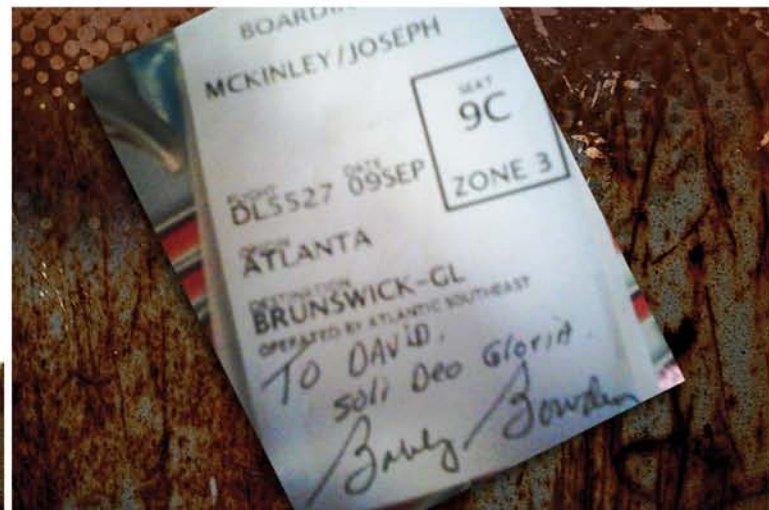 BOARDIN
MCKINLEY/JOSEPH
SEAT
9C
ZONE 3
FLIGHT DATE
DL5527 09SEP
ORIGIN
ATLANTA
DESTINATION
BRUNSWICK-GL
OPERATED BY ATLANTIC SOUTHEAST
TO DAVID,
Soli Deo Gloria.
Bobby Bowden